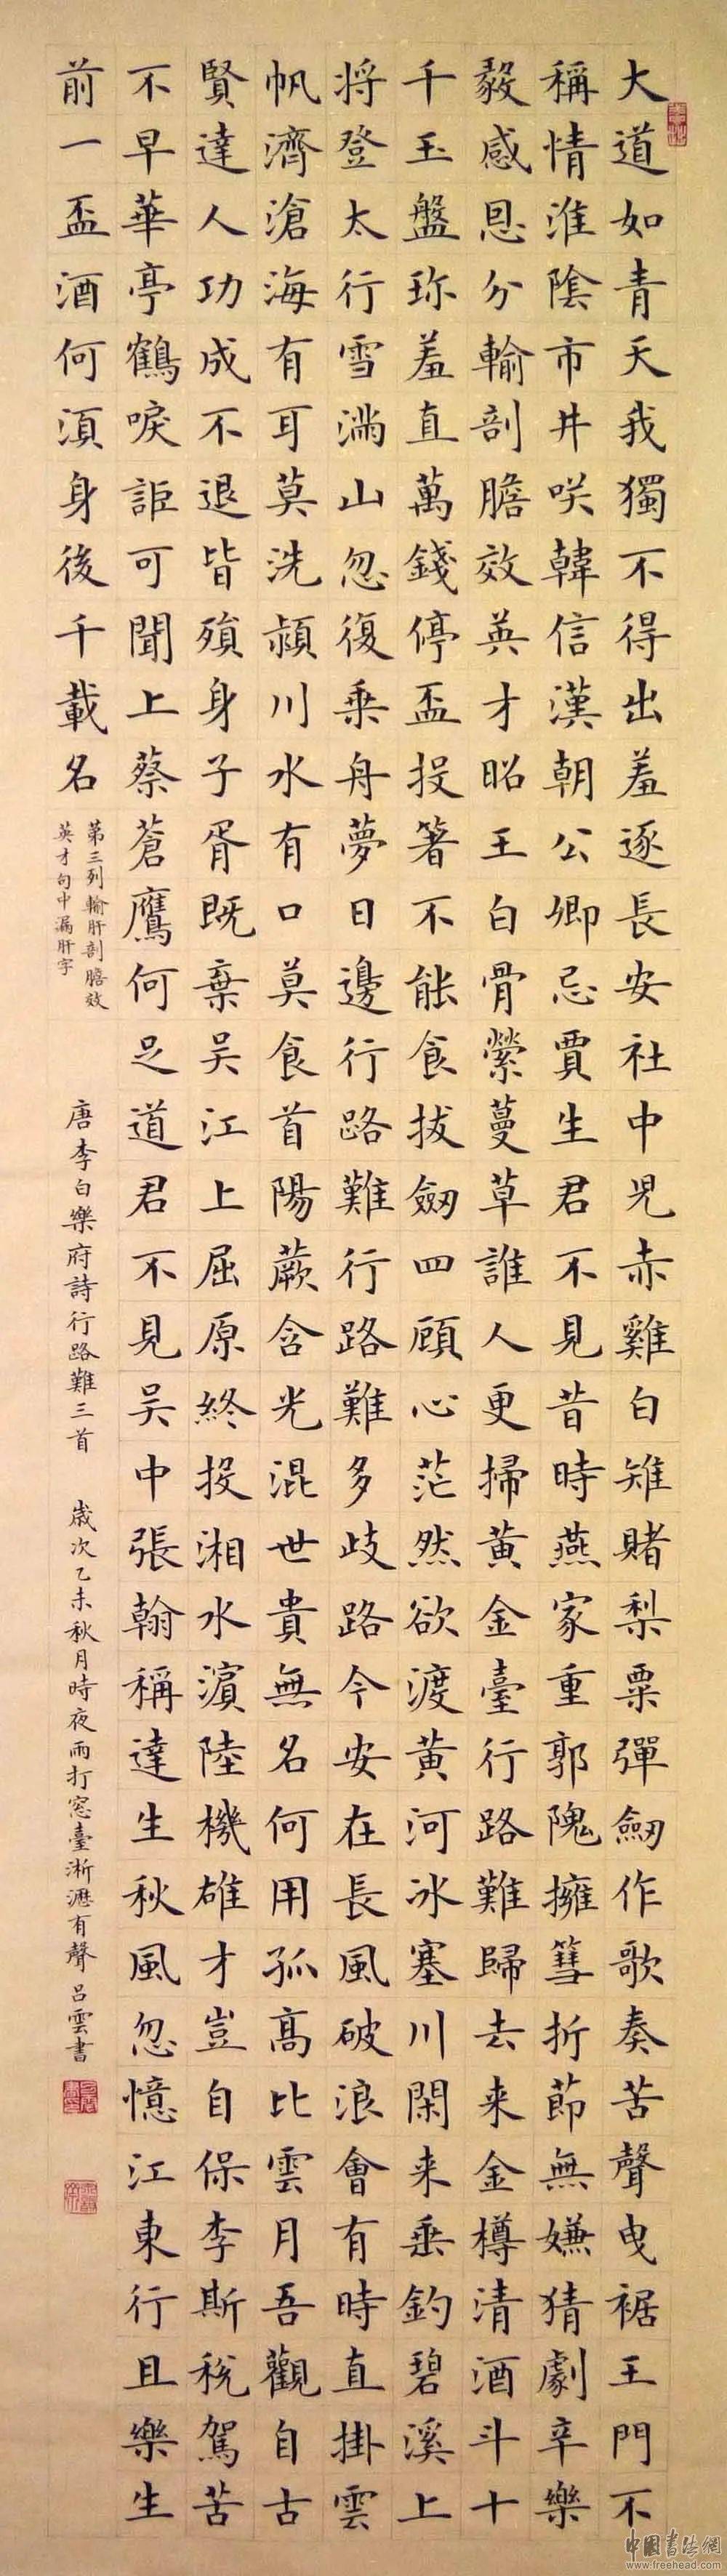 大道如青天我獨不得出羞逐長安社中兒赤雞白雉賭梨粟彈劒作歌奏苦聲曳裾王門不
稱情淮陰市井咲韓信漢朝公卿忌賈生君不見昔時燕家重郭隗擁篲折節無嫌猜劇辛樂
毅感恩分輸剖膽效英才昭王白骨縈蔓草誰人更掃黃金臺行路難歸去来金樽清酒斗十
千玉盤珍羞直萬錢停盃投箸不能食拔劒四顧心茫然欲渡黃河冰塞川閑来垂釣碧溪上
将登太行雪滿山忽復乘舟夢日邊行路難行路難多歧路今安在長風破浪會有時直掛雲
帆濟滄海有耳莫洗潁川水有口莫食首陽蕨含光混世貴無名何用孤高比雲月吾觀自古
賢達人功成不退皆殞身子胥既棄吳江上屈原終投湘水濱陸機雄才豈自保李斯稅駕苦
不早華亭鶴唳詎可聞上蔡蒼鷹何足道君不見吳中張翰稱達生秋風忽憶江東行且樂生
前一盃酒何須身後千載名
第三列輸肝剖膽效
英才句中漏肝字
唐李白樂府詩行路難三首 歲次乙未秋月時夜雨打窓臺淅瀝有聲 吕雲書
中國書法網
www.freehead.com